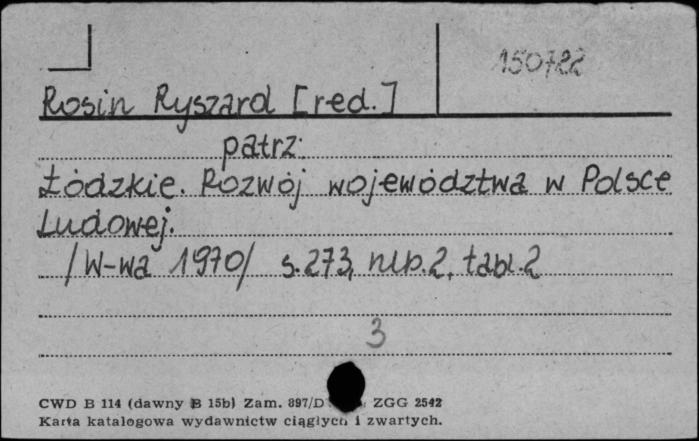 150722
Rosin Ryszard [red.]
patrz:
Łódzkie. Rozwój województwa w Polsce
Ludowej.
/W-wa 1970/ s.273, nlb.2, tabl.2
3
CWD B 114 (dawny B 15b) Zam. 897/D ZGG 2542
Karta katalogowa wydawnictw ciągłych i zwartych.